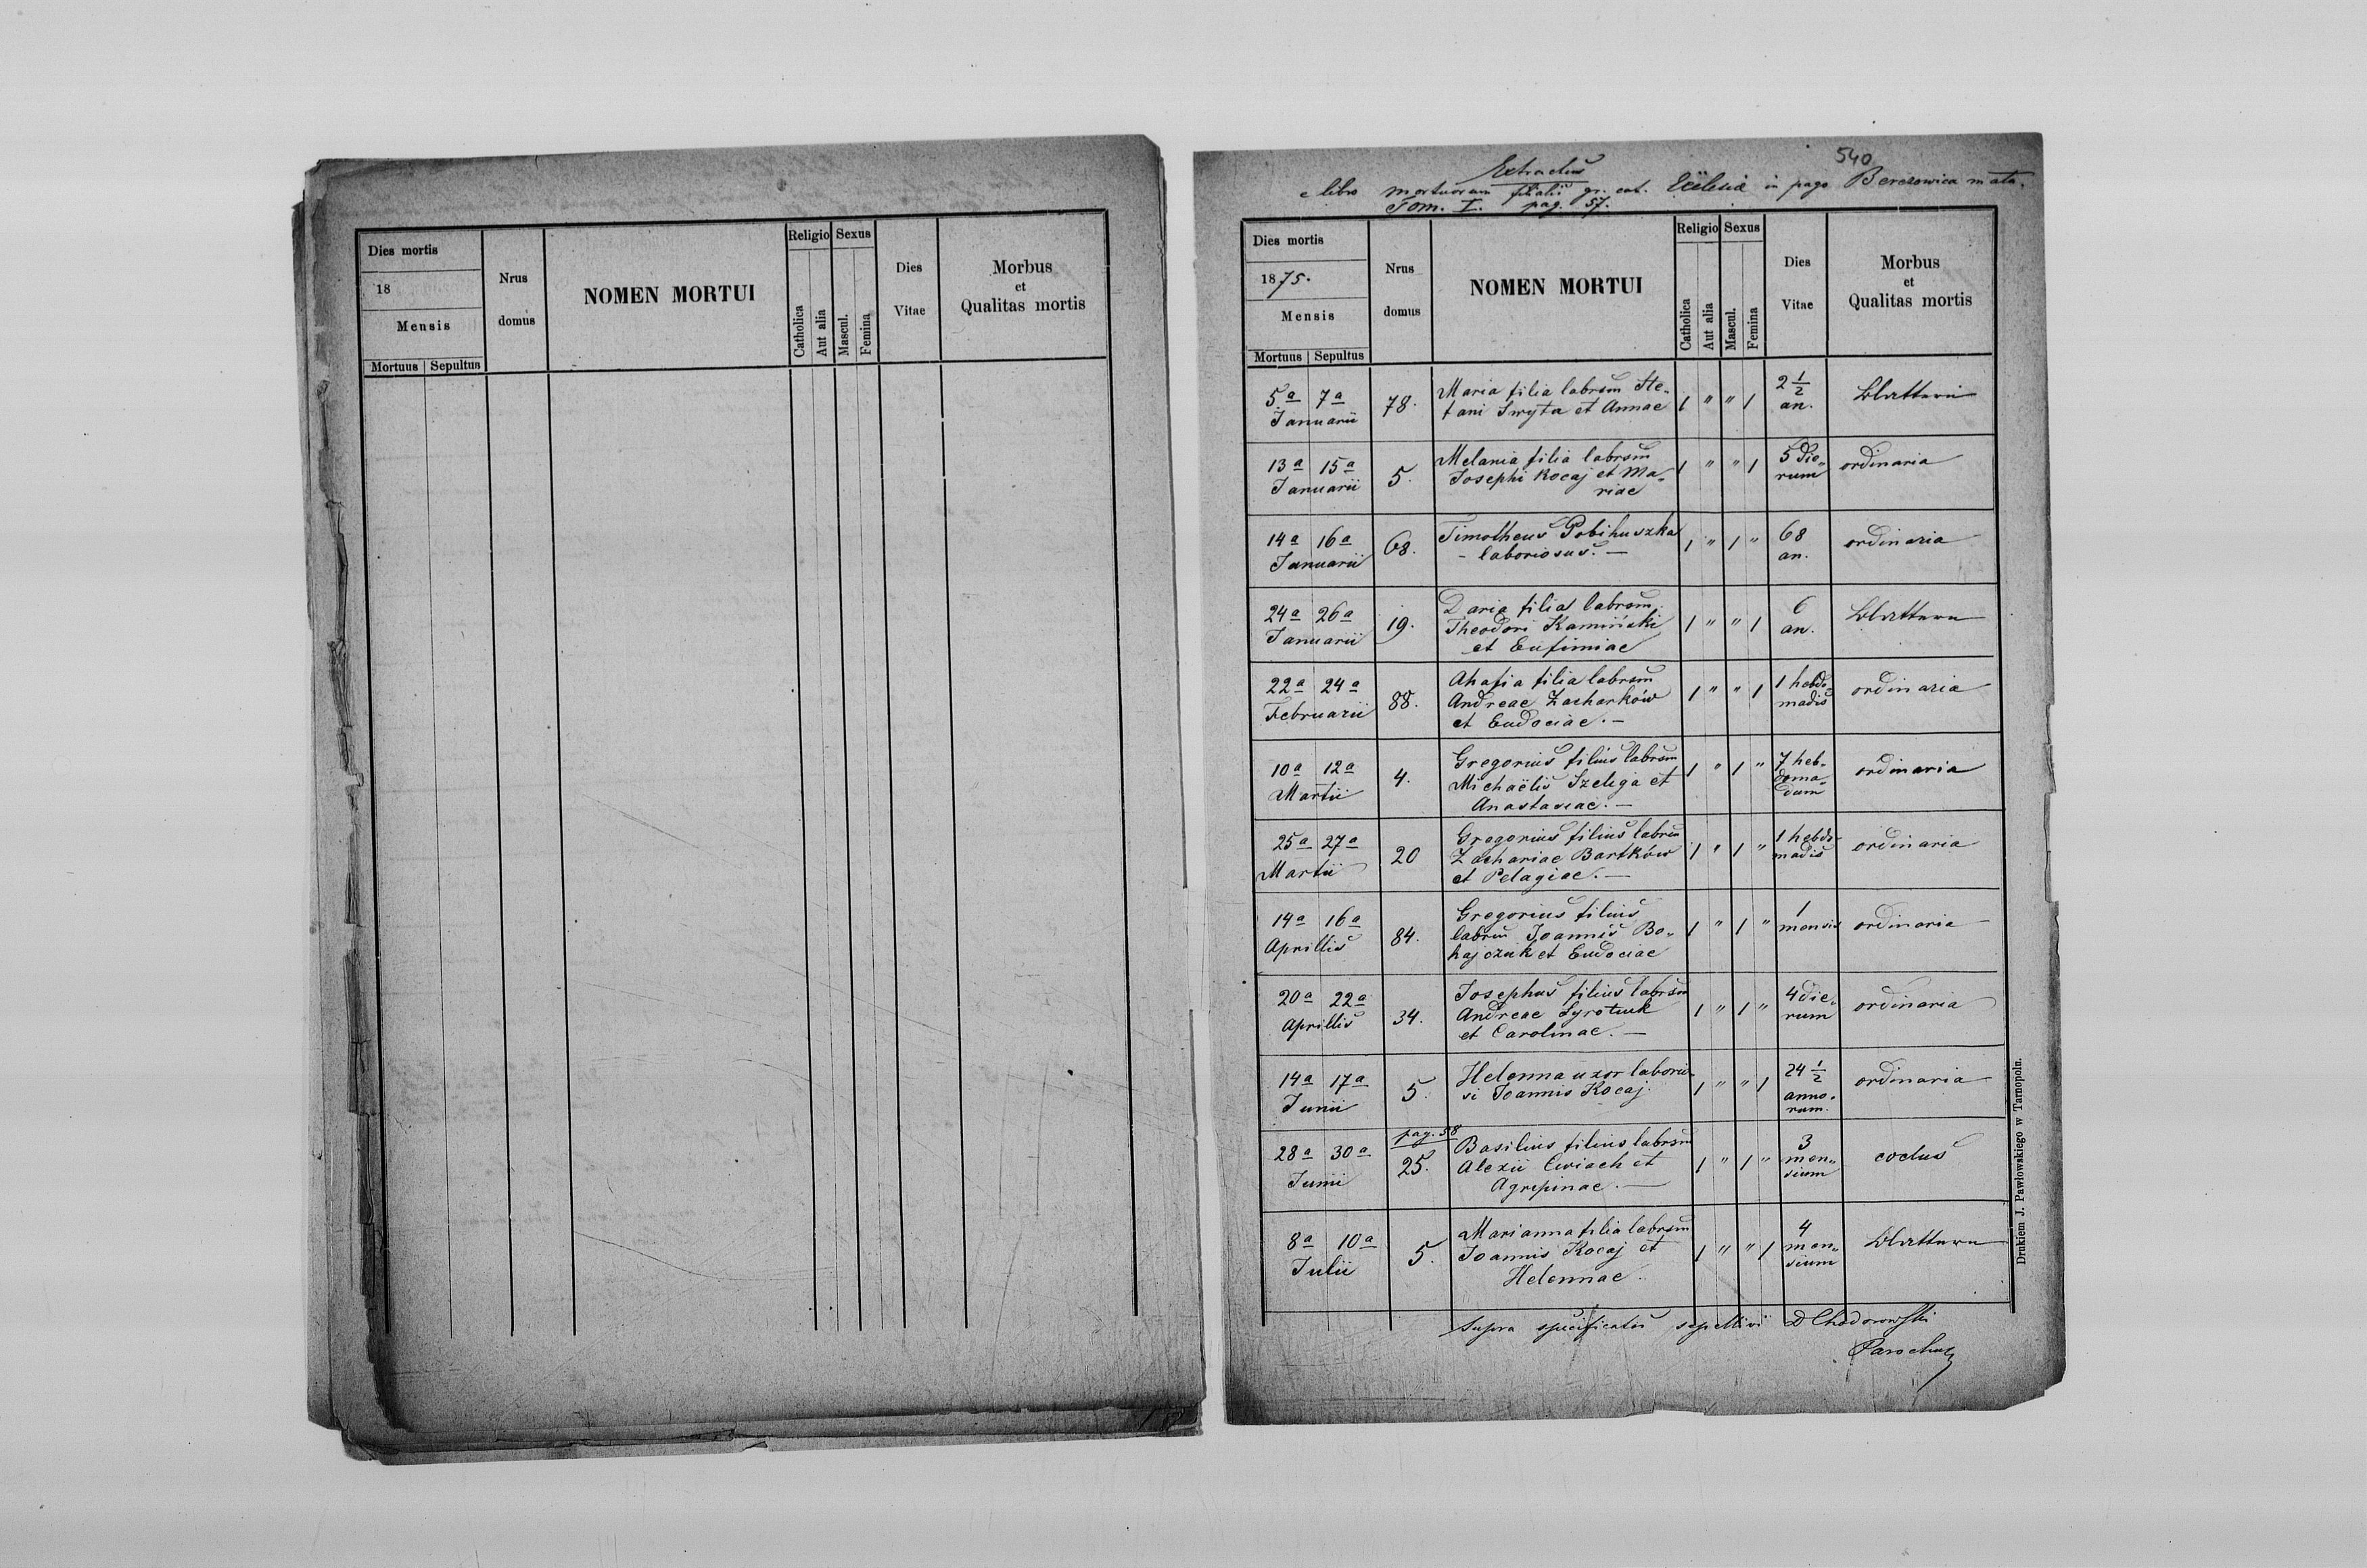 Dies mortis
18
Mensis
Mortuus Sepultus
Nrus
domus
NOMEN MORTUI
Religio Sexus
Catholica
Aut alia
Mascul.
Femina
Dies
Vitae
Morbus
et
Qualitas mortis
540
Extractus
e libro mortuorum filialis gr. cat. Ecclesiae in pago Berezowica mała.
Tom. I. pag. 57.
Dies mortis
1875.
Mensis
Mortuus Sepultus
Nrus
domus
NOMEN MORTUI
Religio Sexus
Catholica
Aut alia
Mascul.
Femina
Dies
Vitae
Morbus
et
Qualitas mortis
5a 7a
Januarii
78.
Maria filia labrsm Ste„
fani Swyta et Annae
1 " " 1
2 1/2
an.
13a 15a
Januarii
5.
Melania filia labrsm
Josephi Kocaj et Ma„
riae
1 " " 1
5 die„
rum
ordinaria
14a 16a
Januarii
68.
Timotheus Pobihuszka
- laboriosus. —
1 " 1 "
68
an.
ordinaria
24a 26a
Januarii
19.
Daria filia labrsm
Theodori Kamiński
et Eufimiae
1 " " 1
6
an.
22a 24a
Februarii
88.
Ahafia filia labrsm
Andreae Zacharków
et Eudociae. —
1 " " 1
1 hebdo
madis
ordinaria
10a 12a
Martii
4.
Gregorius filius labrsm
Michaëlis Szeliga et
Anastasiae. —
1 " 1 "
7 heb„
doma„
dum
ordinaria
25a 27a
Martii
20
Gregorius filius labrsm
Zachariae Bartków
et Pelagiae. —
1 " 1 "
1 hebdo
madis
ordinaria
14a 16a
Aprillis
84.
Gregorius filius
labrsm Joannis Bo„
hajczuk et Eudociae
1 " 1 "
1
mensis
ordinaria
20a 22a
Aprillis
34.
Josephus filius labrsm
Andreae Syrotiuk
et Carolinae. —
1 " 1 "
4 die„
rum
ordinaria
14a 17a
Junii
5.
Helenna uxor laborio„
si Joannis Kocaj.
1 " " 1
24 1/2
anno„
rum.
ordinaria
pag. 58
28a 30a
Junii
25.
Basilius filius labrsm
Alexii Cwiach et
Agripinae. —
1 " 1 "
3
men„
sium
8a 10a
Julii
5.
Marianna filia labrsm
Joannis Kocaj et
Helennae.
1 " " 1
4
men„
sium
Supra specificatos sepellivi D Chodorowski
Parochus
Drukiem J. Pawłowskiego w Tarnopolu.